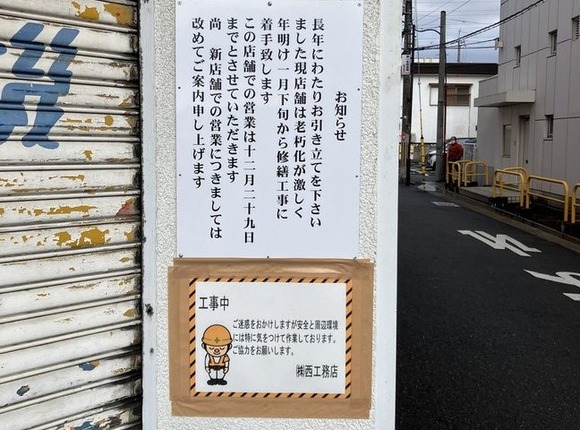 お知らせ
長年にわたりお引き立てを下さい
ました現店舗は老朽化が激しく
年明け一月下旬から修繕工事に
着手致します
この店舗での営業は十二月二十九日
までとさせていただきます
尚　新店舗での営業につきましては
改めてご案内申し上げます
工事中
ご迷惑をおかけしますが安全と周辺環境
には特に気をつけて作業しております。
ご協力をお願いします。
㈱西工務店